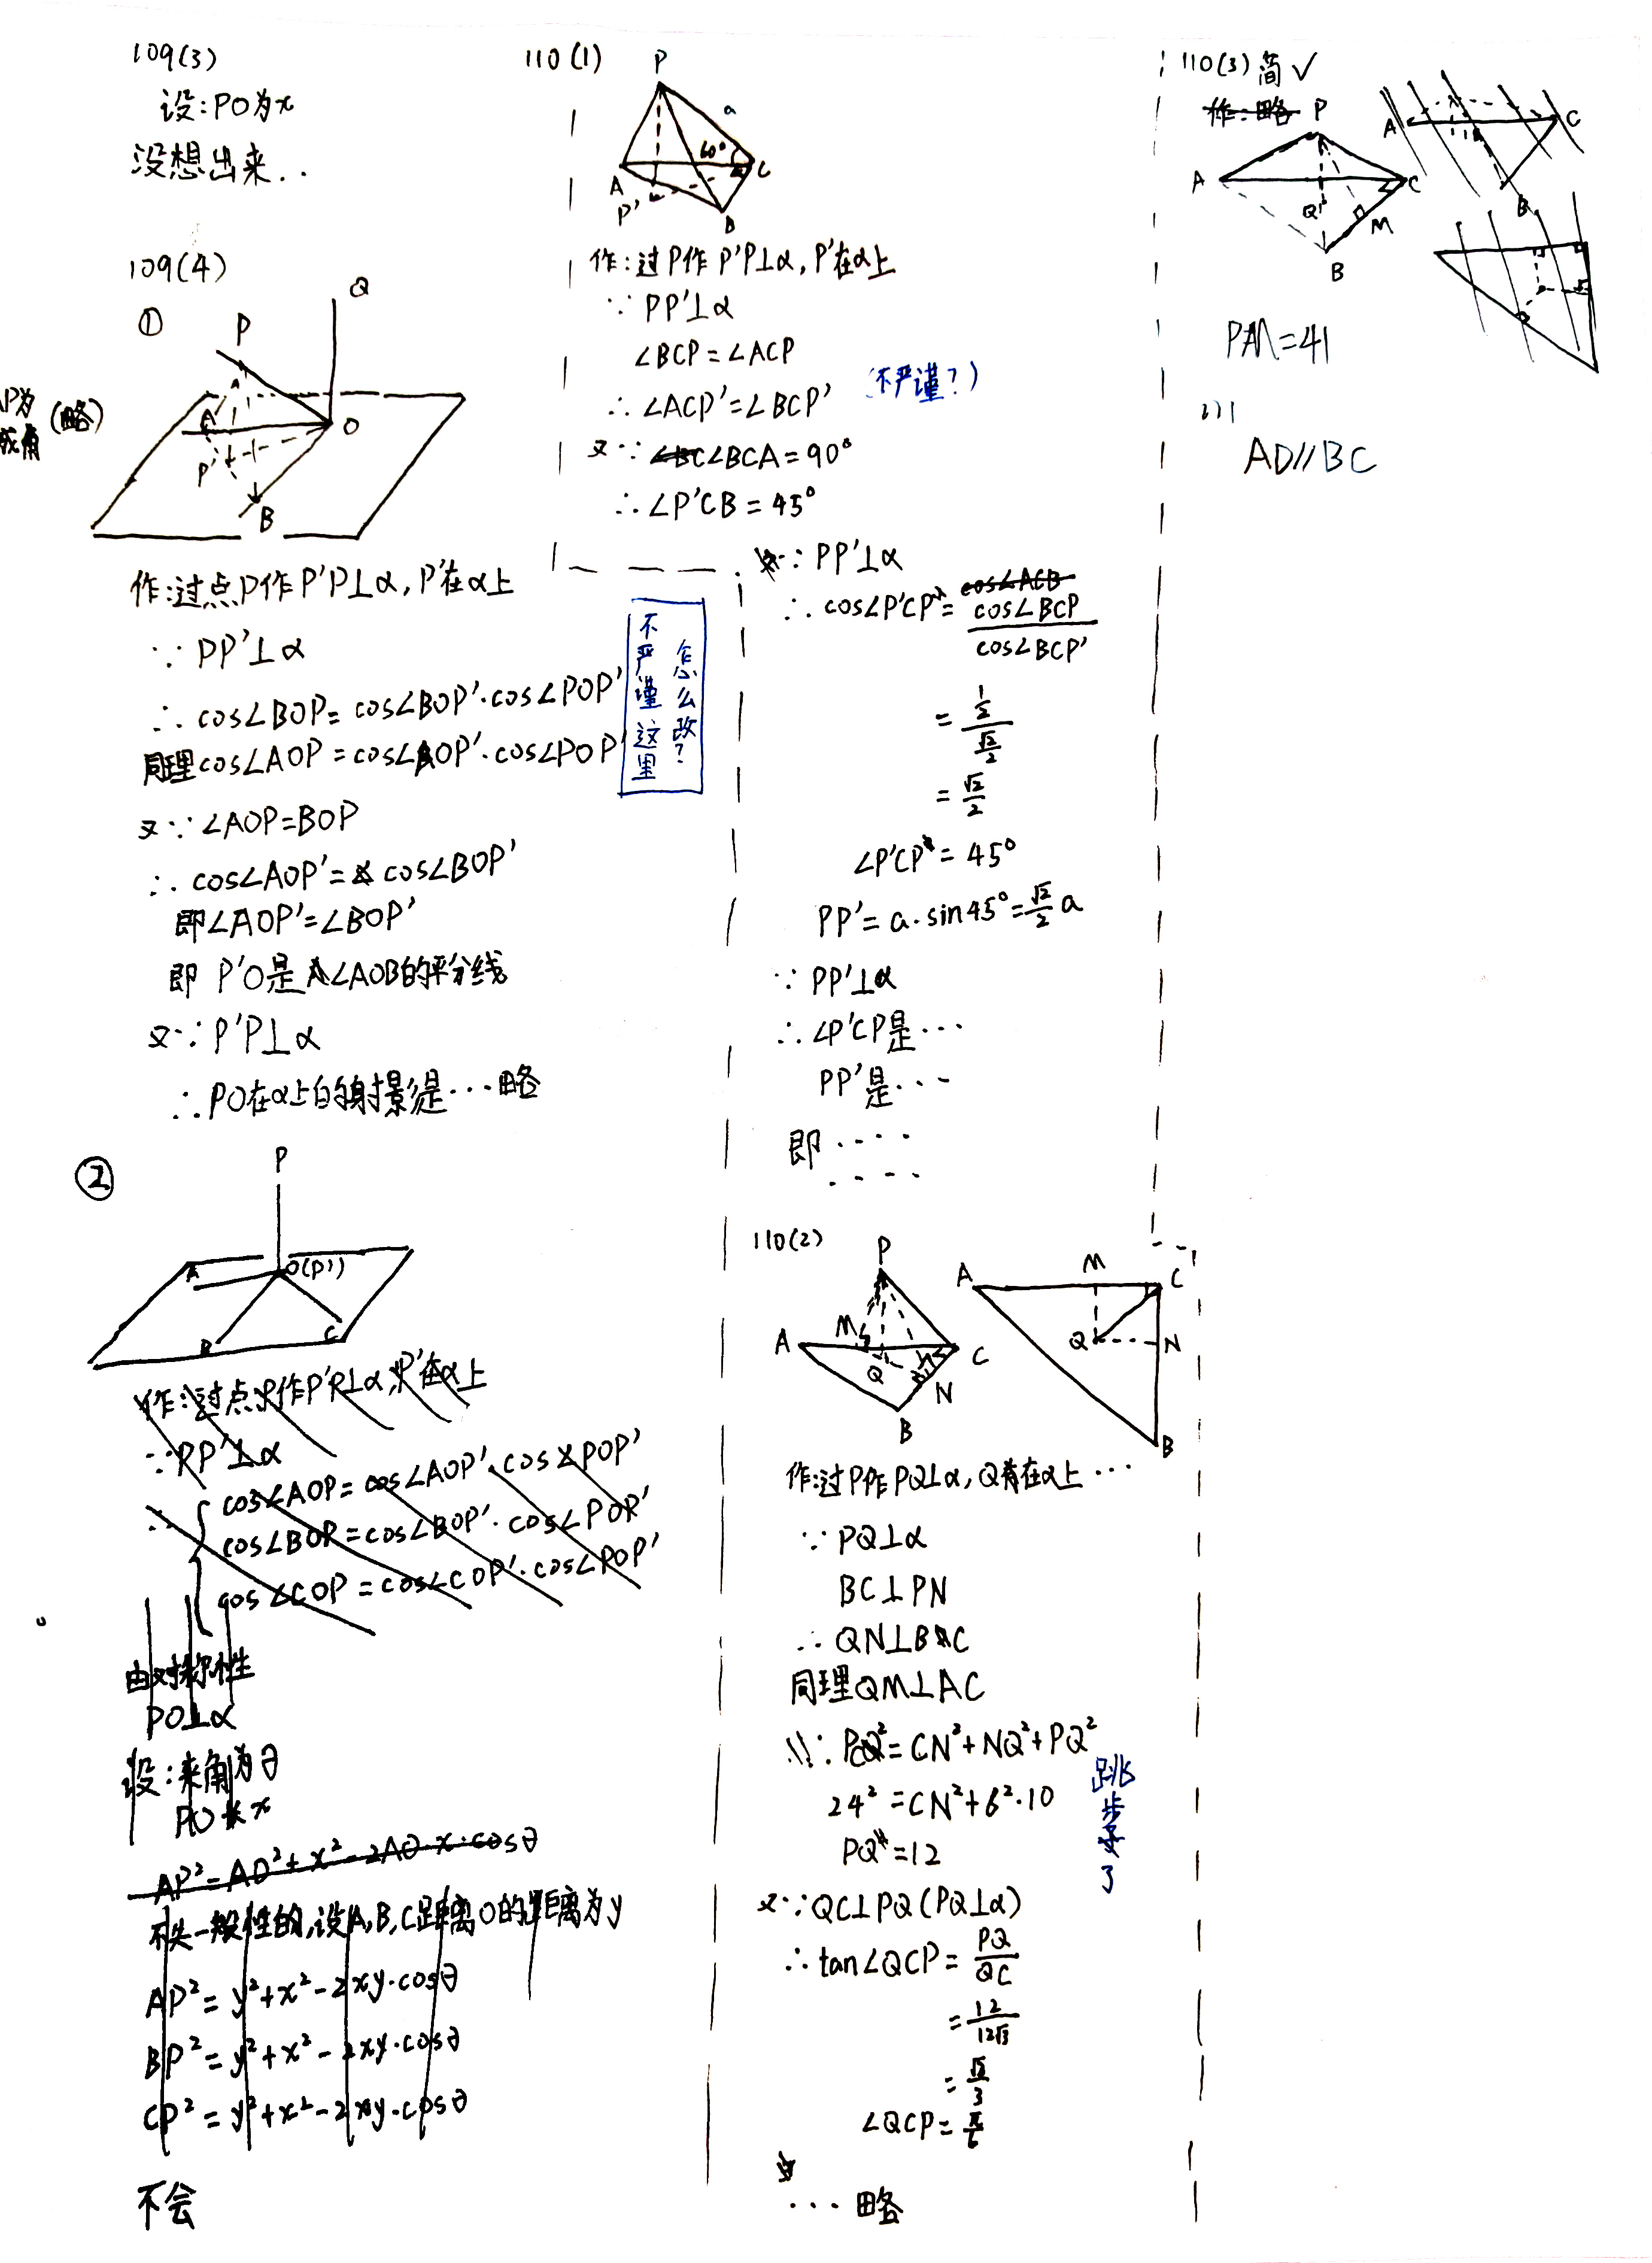 109(3)
设:PO为x
没想出来..
109(4)
①
P
Q
A
O
P'
B
P为
成角
(略)
作:过点P作P'P⊥α,P'在α上
∵PP'⊥α
∴cos∠BOP=cos∠BOP'·cos∠POP'
同理cos∠AOP=cos∠AOP'·cos∠POP'
不严谨这里
怎么改?
又∵∠AOP=BOP
∴cos∠AOP'=cos∠BOP'
即∠AOP'=∠BOP'
即 P'O是∠AOB的平分线
又∵P'P⊥α
∴PO在α上的射影是···略
②
P
A
O(P')
B
C
作:过点P作P'P⊥α,P'在α上
∵PP'⊥α
∴
cos∠AOP=cos∠AOP'·cos∠POP'
cos∠BOP=cos∠BOP'·cos∠POP'
cos∠COP=cos∠COP'·cos∠POP'
由对称性
PO⊥α
设:夹角为θ
PO长x
AP²=AO²+x²-2AO·x·cosθ
不失一般性的,设A,B,C距离O的距离为y
AP²=y²+x²-2xy·cosθ
BP²=y²+x²-2xy·cosθ
CP²=y²+x²-2xy·cosθ
不会
110(1)
P
a
60°
A
C
P'
B
作:过P作P'P⊥α,P'在α上
∵PP'⊥α
∠BCP=∠ACP
∴∠ACP'=∠BCP'
(不严谨?)
又∵∠BCA=90°
∴∠P'CB=45°
∵PP'⊥α
cos∠ACB
∴cos∠P'CP=cos∠BCP/cos∠BCP'
=1/2/√2/2
=√2/2
∠P'CP=45°
PP'=a·sin45°=√2/2 a
∵PP'⊥α
∴∠P'CP是···
PP'是···
即····
····
110(2)
P
M
A
Q
C
N
B
A
M
C
Q
N
B
作:过P作PQ⊥α,Q在α上···
∵PQ⊥α
BC⊥PN
∴QN⊥BC
同理QM⊥AC
∵PC²=CN²+NQ²+PQ²
24²=CN²+6²·10
PQ=12
跳步多了
又∵QC⊥PQ(PQ⊥α)
∴tan∠QCP=PQ/QC
=12/12√3
=√3/3
∠QCP=π/6
···略
110(3)简√
作:略
P
A
C
Q
M
B
A
C
B
PM=41
AD//BC